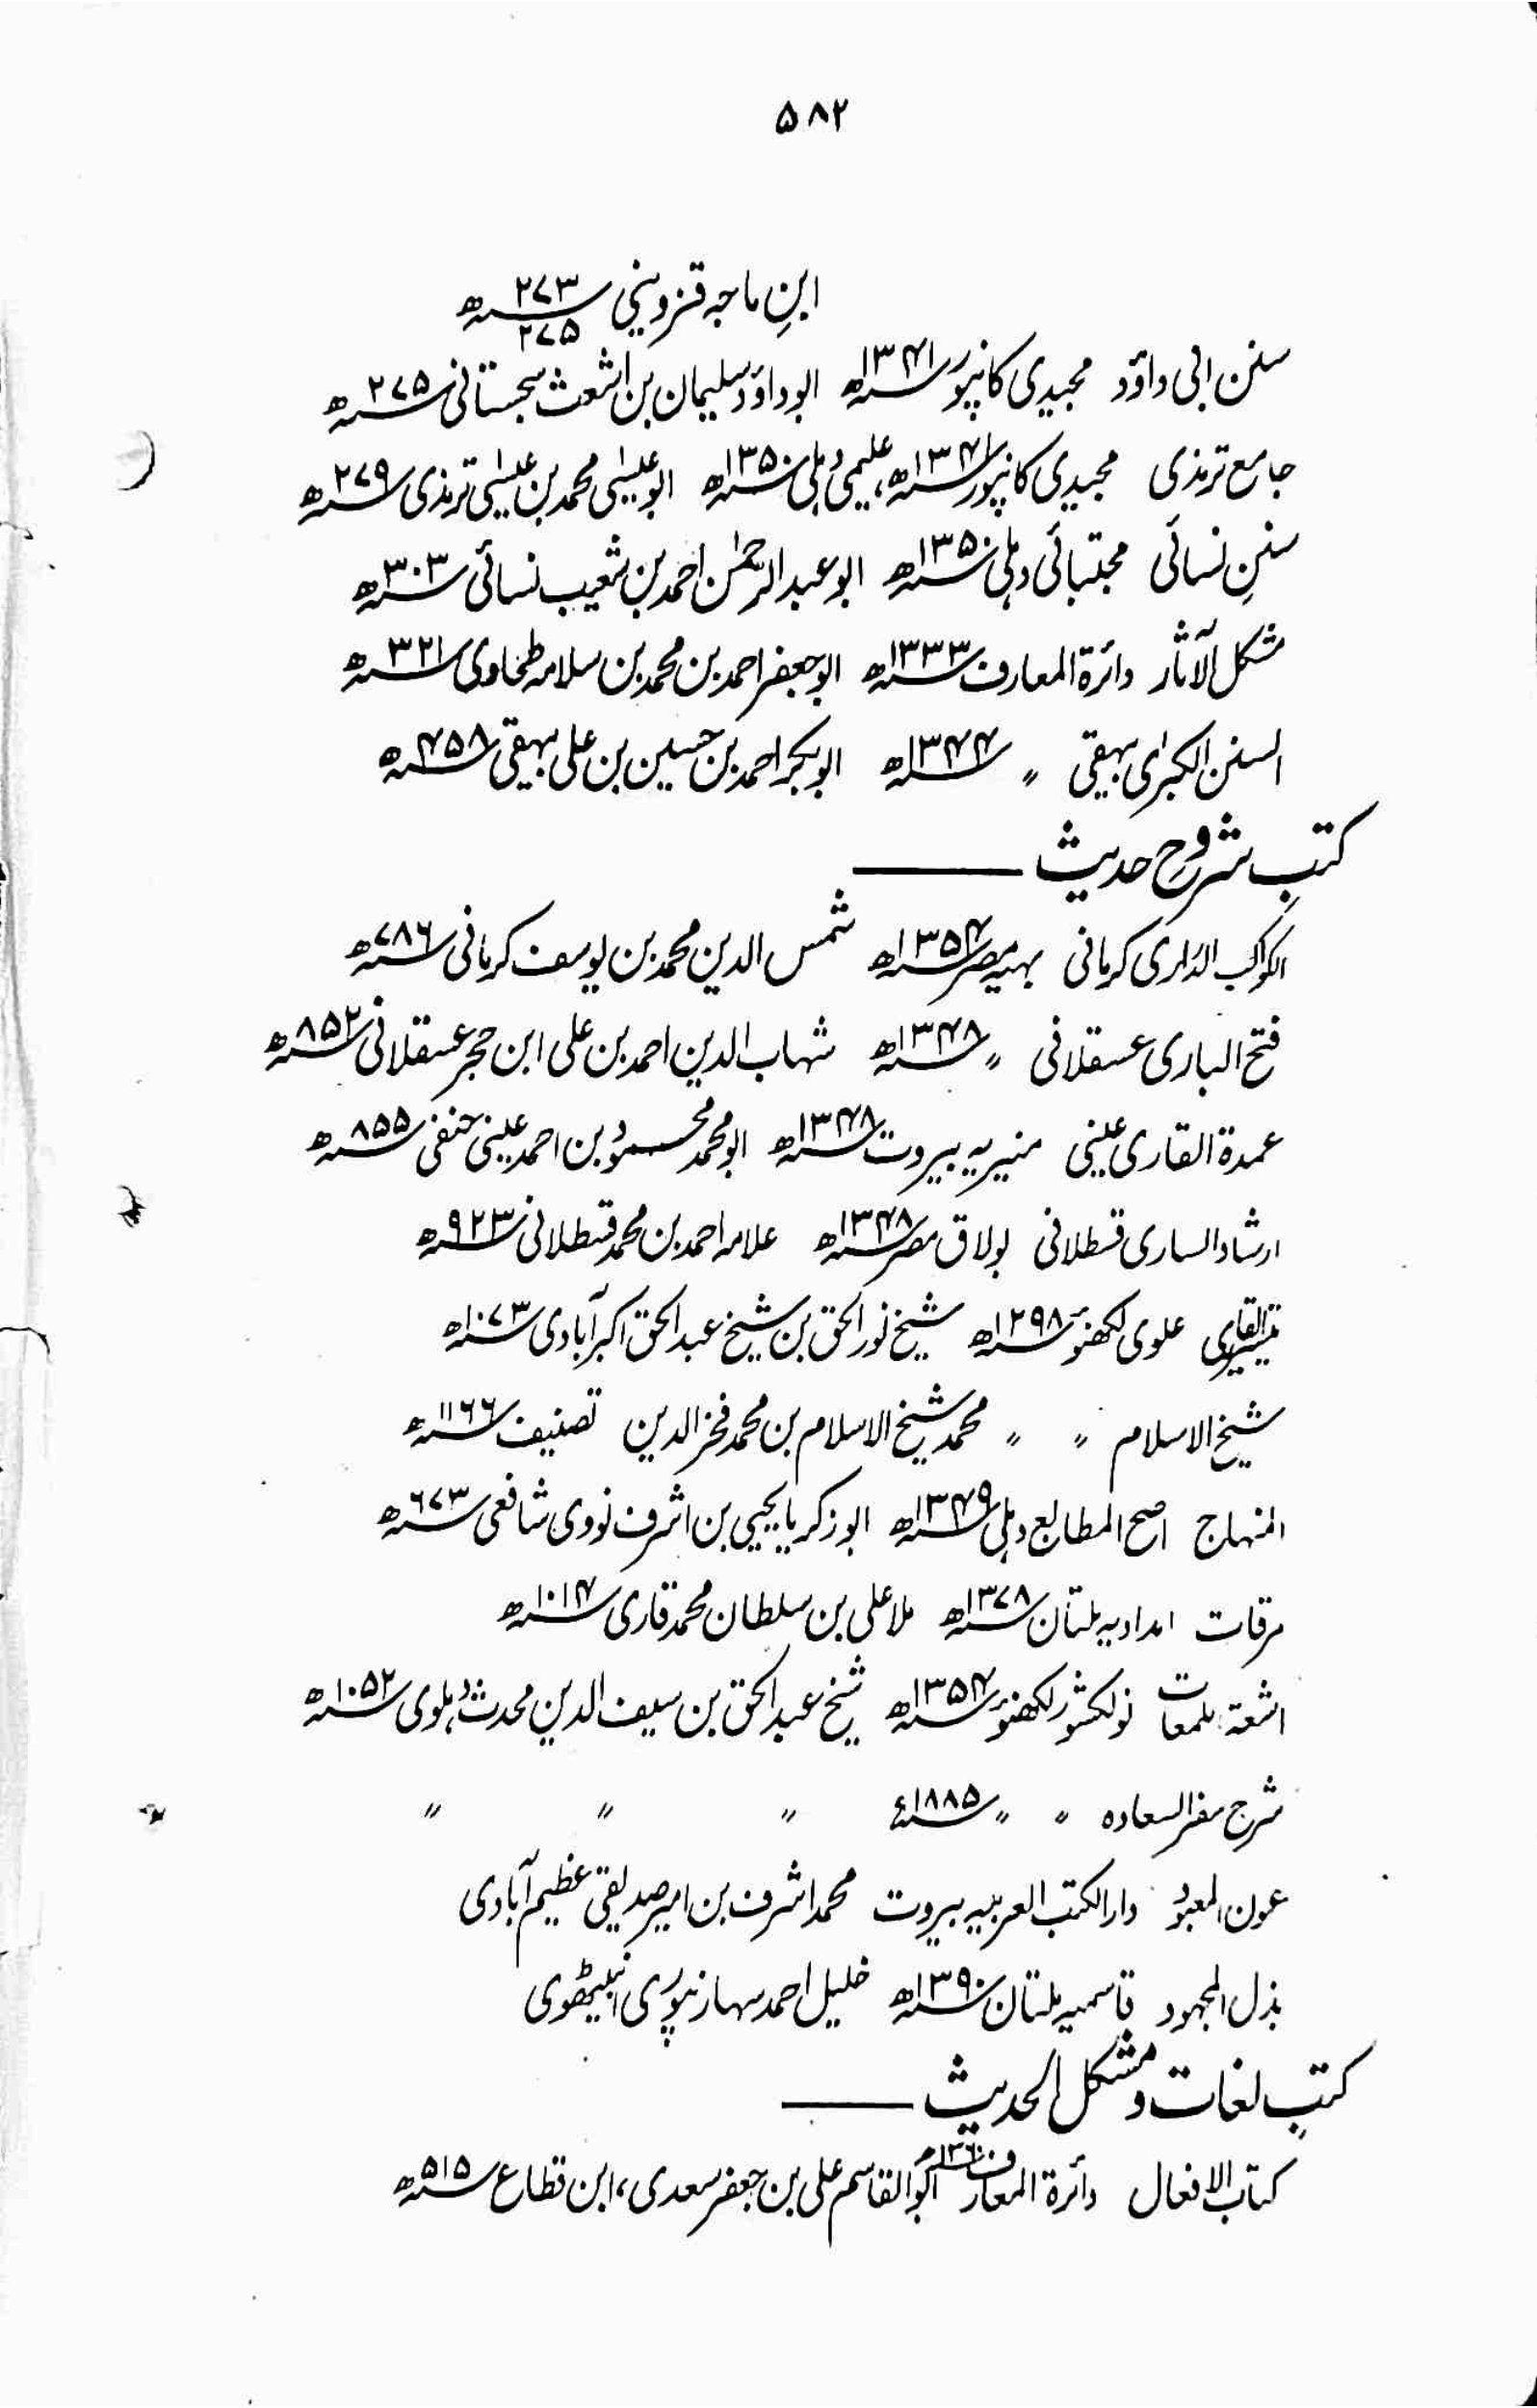 ۵۸۲
ابنِ ماجہ قزوینی ۲۷۳ھ
۲۷۵
سنن ابی داؤد مجیدی کانپور ۱۳۴۱ھ ابوداؤد سلیمان بن اشعث سجستانی ۲۷۵ھ
جامع ترمذی مجیدی کانپور ۱۳۴۱ھ، علیمی دہلی ۱۳۵۰ھ ابو عیسٰی محمد بن عیسٰی ترمذی ۲۷۹ھ
سننِ نسائی مجتبائی دہلی ۱۳۵۰ھ ابو عبد الرحمٰن احمد بن شعیب نسائی ۳۰۳ھ
مشکل الآثار دائرۃ المعارف ۱۳۳۳ھ ابو جعفر احمد بن محمد بن سلامہ طحاوی ۳۲۱ھ
السنن الکبرٰی بیہقی 〃 ۱۳۴۴ھ ابوبکر احمد بن حسین بن علی بیہقی ۴۵۸ھ
کتبِ شروحِ حدیث ——
الکواکب الدراری کرمانی بہیہ مصر ۱۳۵۴ھ شمس الدین محمد بن یوسف کرمانی ۷۸۶ھ
فتح الباری عسقلانی 〃 ۱۳۴۸ھ شہاب الدین احمد بن علی ابن حجر عسقلانی ۸۵۲ھ
عمدۃ القاری عینی منیریہ بیروت ۱۳۴۸ھ ابو محمد محمود بن احمد عینی حنفی ۸۵۵ھ
ارشاد الساری قسطلانی بولاق مصر ۱۳۴۸ھ علامہ احمد بن محمد قسطلانی ۹۲۳ھ
تیسیر القاری علوی لکھنؤ ۱۲۹۸ھ شیخ نور الحق بن شیخ عبد الحق اکبر آبادی ۱۰۷۳ھ
شیخ الاسلام 〃 〃 محمد شیخ الاسلام بن محمد فخر الدین تصنیف ۱۱۶۶ھ
المنہاج اصح المطابع دہلی ۱۳۴۹ھ ابو زکریا یحیی بن اشرف نووی شافعی ۶۷۳ھ
مرقات امدادیہ ملتان ۱۳۷۸ھ ملا علی بن سلطان محمد قاری ۱۰۱۴ھ
اشعۃ لمعات نولکشور لکھنؤ ۱۳۵۴ھ شیخ عبد الحق بن سیف الدین محدث دہلوی ۱۰۵۲ھ
شرح سفر السعادہ 〃 〃 ۱۸۸۵ء 〃 〃 〃
عون المعبود دار الکتب العربیہ بیروت محمد اشرف بن امیر صدیقی عظیم آبادی
بذل المجہود قاسمیہ ملتان ۱۳۹۰ھ خلیل احمد سہارنپوری انبیٹھوی
کتبِ لغات و مشکل الحدیث ——
کتاب الافعال دائرۃ المعارف ۱۳۶۰ھ ابو القاسم علی بن جعفر سعدی، ابن قطاع ۵۱۵ھ